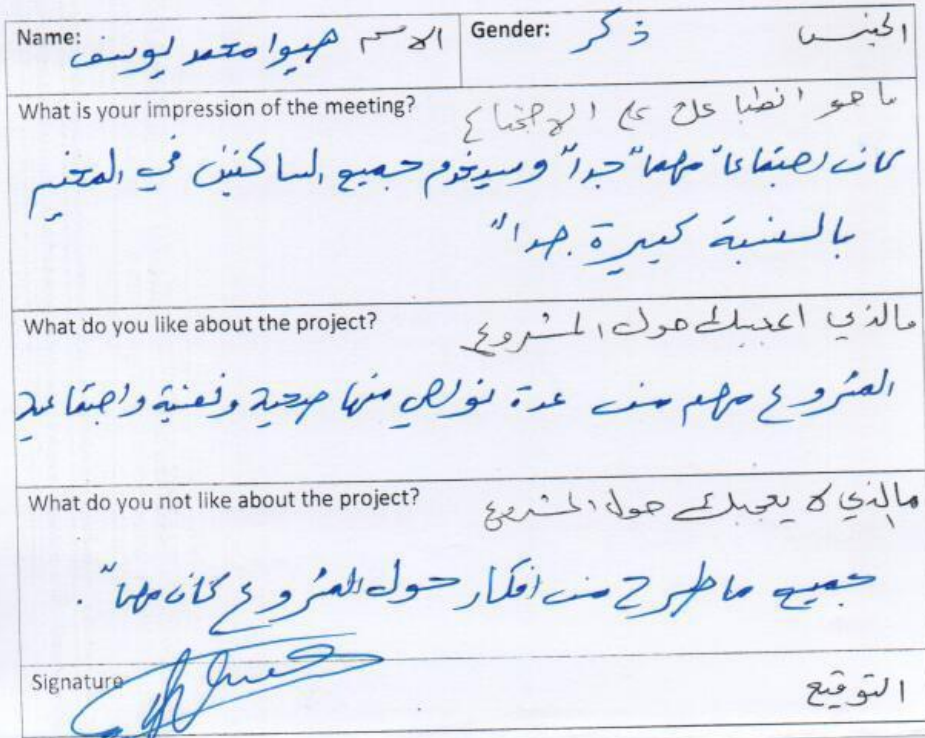 Name: الاسم هيوا محمد يوسف Gender: ذكر الجنس
What is your impression of the meeting? ما هو انطباعك عن الاجتماع
كان اجتماعاً مهماً جداً وسيخدم جميع الساكنين في المخيم
بالنسبة كبيرة جداً
What do you like about the project? مالذي اعجبك حول المشروع
المشروع مهم من عدة نواحي منها صحية ونفسية واجتماعية
What do you not like about the project? مالذي لا يعجبك حول المشروع
جميع ما طرح من افكار حول المشروع كان مهماً.
Signature التوقيع